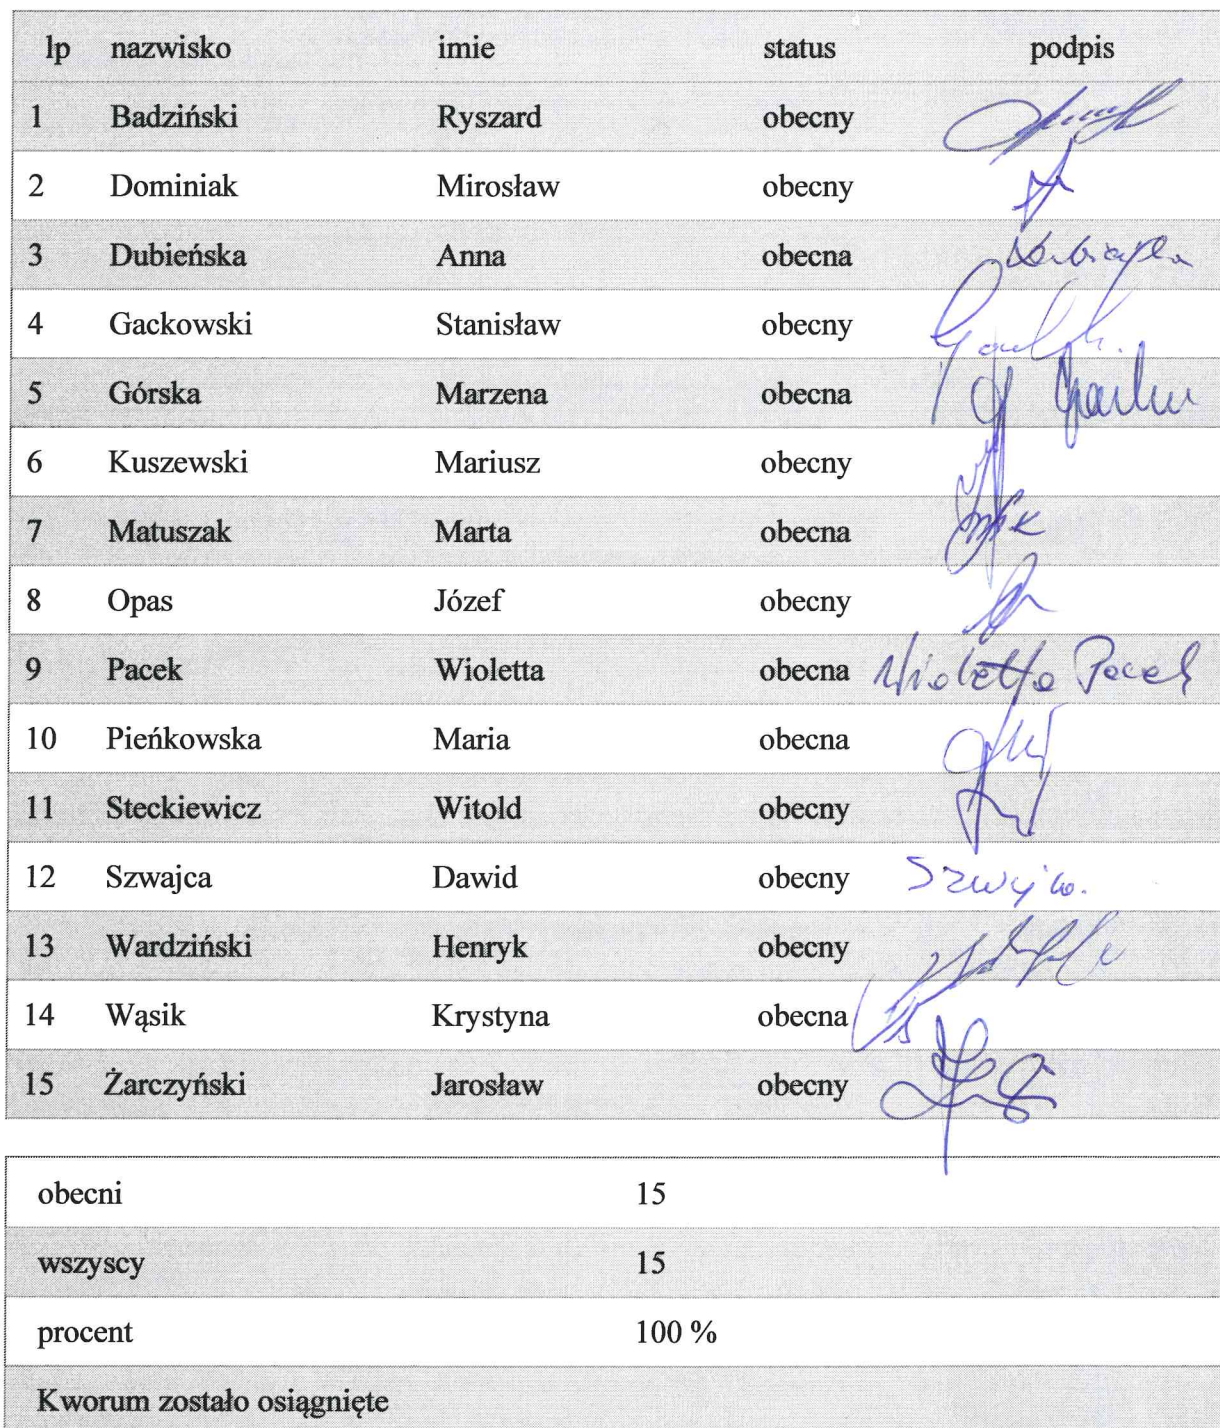 lp nazwisko imie status podpis
1 Badziński Ryszard obecny
2 Dominiak Mirosław obecny
3 Dubieńska Anna obecna
4 Gackowski Stanisław obecny
5 Górska Marzena obecna
6 Kuszewski Mariusz obecny
7 Matuszak Marta obecna
8 Opas Józef obecny
9 Pacek Wioletta obecna Wioletta Pacek
10 Pieńkowska Maria obecna
11 Steckiewicz Witold obecny
12 Szwajca Dawid obecny
13 Wardziński Henryk obecny
14 Wąsik Krystyna obecna
15 Żarczyński Jarosław obecny
obecni 15
wszyscy 15
procent 100 %
Kworum zostało osiągnięte